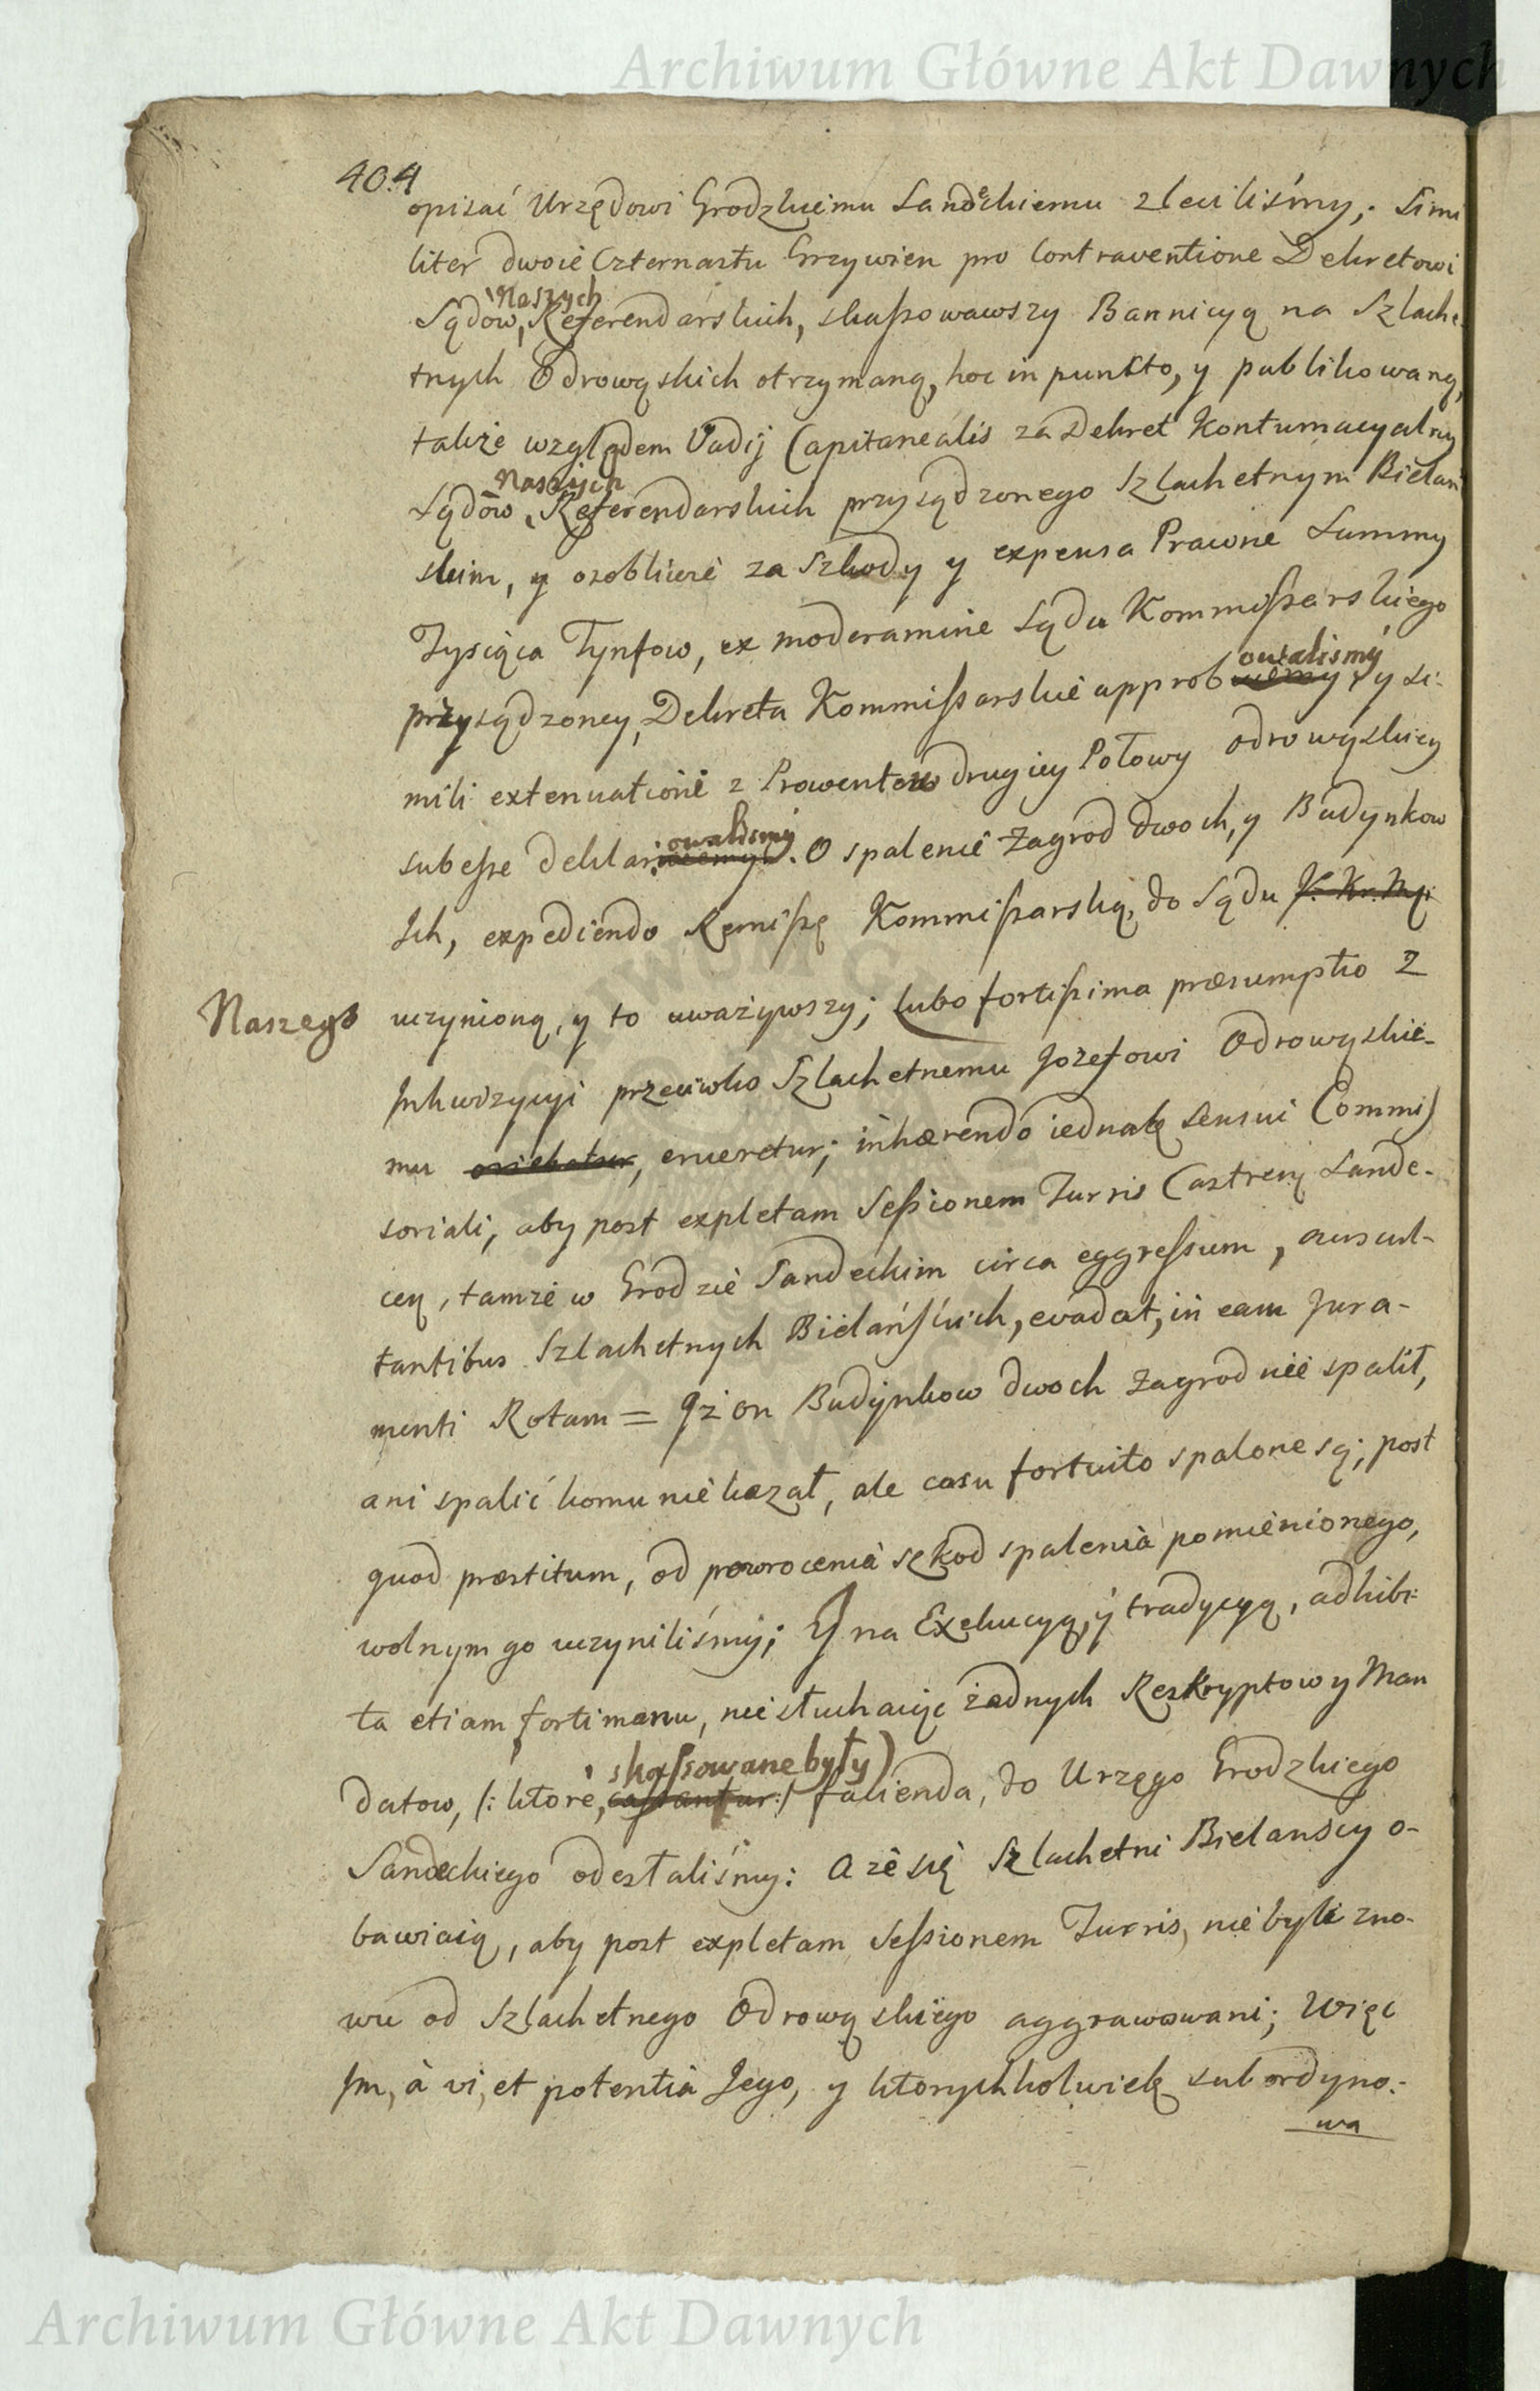 Archiwum Główne Akt Dawnych
404
opisać Urzędowi Grodzkiemu Sandeckiemu zleciliśmy; Simi
liter dwoie Czternastu Grzywien pro Contraventione Dekretowi
Naszych
Sądow, Referendarskich, skaßowawszy Bannicyą na Szlache
tnych Odrowąskich otrzymaną, hoc in puncto, y publikowaną,
także względem Vadij Capitanealis za Dekret Kontumacyalny
Naszych
Sądow Referendarskich przysądzonego Szlachetnym Bielań
skim, y osobliwie za Szkody y expensa Prawne Summy
Tysiąca Tynfow, ex moderamine Sądu Kommißarskiego
owaliśmy
przysądzoney, Dekreta Kommißarskie approb uiemy, y si-
mili extenuatione z Prowentow drugiey Połowy Odrowąskiey
owaliśmy
subeße deklar uiemy. O spalenie Zagrod dwoch, y Budynkow
Ich, expediendo Remißę Kommißarską, do Sądu J. Kr. Mci
Naszego uczynioną, y to uważywszy; lubo fortißima præsumptio z
Inkwizycyi przeciwko Szlachetnemu Jozefowi Odrowąskie-
mu oriebatur, erueretur; inhærendo iednak sensui Commi
soriali, aby post expletam Seßionem Turris Castren͠ Sande-
cen͠, tamże w Grodzie Sandeckim circa eggreßum, auscul-
tantibus Szlachetnych Bielańskich, evadat, in eam Jura-
menti Rotam = Iż on Budynkow dwoch Zagrod nie spalił,
ani spalić komu nie kazał, ale casu fortuito spalone są; post
quod præstitum, od powrocenia szkod spalenia pomienionego,
wolnym go uczyniliśmy; Y na Exekucyą, y tradycyą, adhibi-
ta etiam forti manu, nie słuchaiąc żadnych Reskryptow y Man
skaßowane były)
datow, /: ktore, caßantur :/ facienda, do Urzęgo Grodzkiego
Sandeckiego odesłaliśmy: A że się Szlachetni Bielanscy o-
bawiaią, aby post expletam Seßionem Turris, nie byli zno-
wu od Szlachetnego Odrowąskiego aggrawowani; Więc
Im, à vi, et potentia Jego, y ktorychkolwiek subordyno-
wa
Archiwum Główne Akt Dawnych